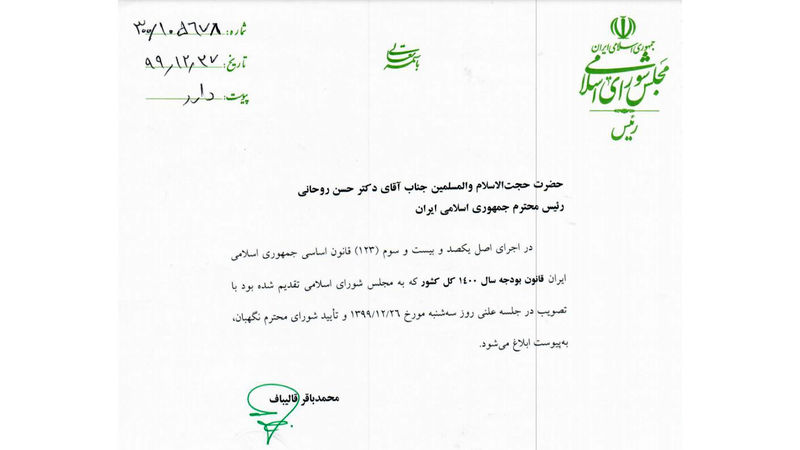 جمهوری اسلامی ایران
مجلس شورای اسلامی
رئیس
باسمه تعالی
شماره: ۳۰۰/۱۰۵۶۷۸
تاریخ: ۹۹/۱۲/۲۷
پیوست: دارد
حضرت حجت‌الاسلام والمسلمین جناب آقای دکتر حسن روحانی
رئیس محترم جمهوری اسلامی ایران
در اجرای اصل یکصد و بیست و سوم (۱۲۳) قانون اساسی جمهوری اسلامی
ایران قانون بودجه سال ۱۴۰۰ کل کشور که به مجلس شورای اسلامی تقدیم شده بود با
تصویب در جلسه علنی روز سه‌شنبه مورخ ۱۳۹۹/۱۲/۲۶ و تأیید شورای محترم نگهبان،
به‌پیوست ابلاغ می‌شود.
محمدباقر قالیباف